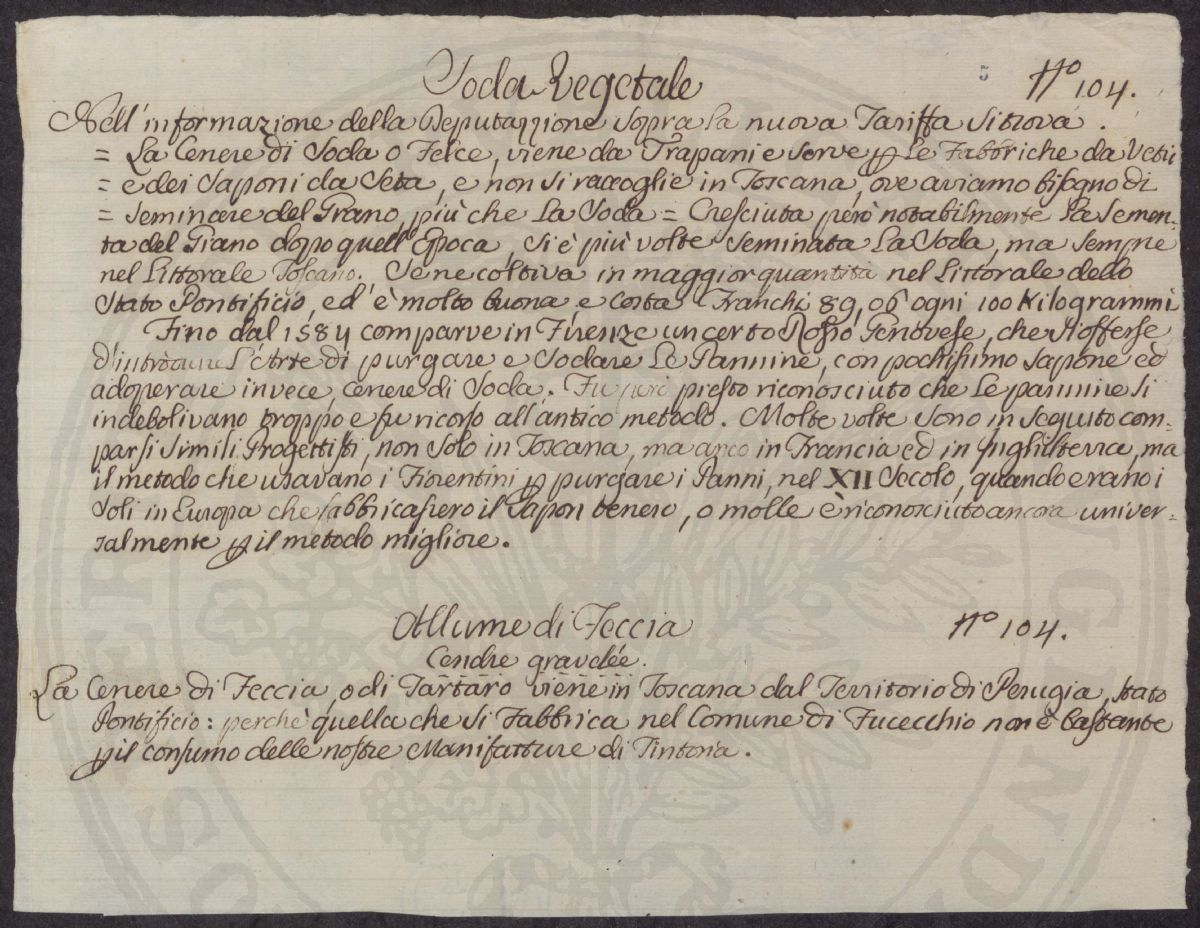 Soda Vegetale
5
N.o 104.
Nell'informazione della Deputazzione sopra la nuova Tariffa si trova.
= La Cenere di Soda o Felce, viene da Trapani e serve p le Fabbriche da Vetri
= e dei Saponi da Seta, e non si raccoglie in Toscana, ove aviamo bisogno di
= seminare del Grano, più che la Soda = Cresciuta però notabilmente la semen=
ta del Grano dopo quell'Epoca, si è più volte seminata la Soda, ma sempre
nel Littorale Toscano. Se ne coltiva in maggior quantità nel Littorale dello
Stato Pontificio, ed è molto buona e costa Franchi 89,06 ogni 100 Kilogrammi
Fino dal 1584 comparve in Firenze un certo Rosso Genovese, che s'offerse
d'introdurre l'Arte di purgare e Sodare le Pannine, con pochissimo sapone ed
adoperare invece, cenere di Soda. Fu però presto riconosciuto che le pannine si
indebolivano troppo e fu ricorso all'antico metodo. Molte volte sono in seguito com=
parsi simili Progettisti, non solo in Toscana, ma anco in Francia ed in Inghilterra, ma
il metodo che usavano i Fiorentini p purgare i Panni, nel XII Secolo, quando erano i
soli in Europa che fabbricassero il Sapon tenero, o molle è riconosciuto ancora univer=
salmente p il metodo migliore.
Allume di Feccia
N.o 104.
Cendre gravelée.
La Cenere di Feccia, o di Tartaro viene in Toscana dal Territorio di Perugia, Stato
Pontificio: perchè quella che si Fabbrica nel Comune di Fucecchio non è bastante
p il consumo delle nostre Manifatture di Tintoria.